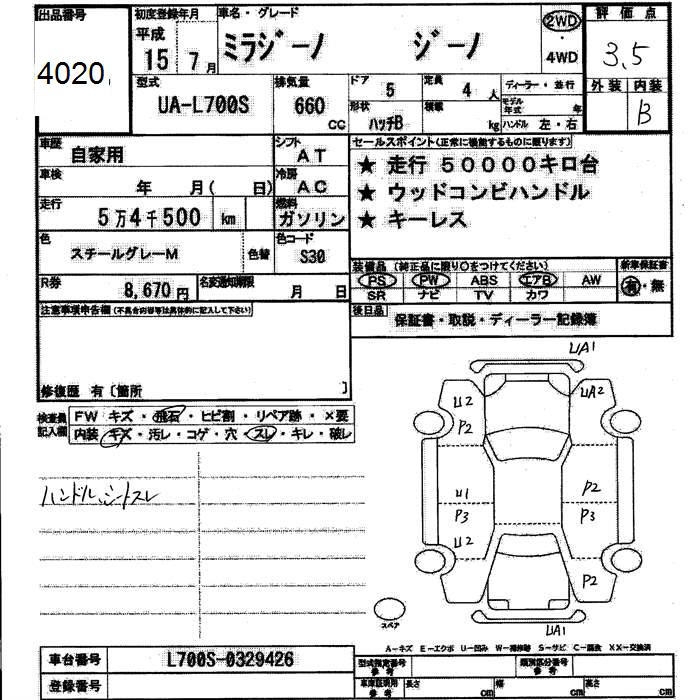 出品番号 初度登録年月 車名・グレード 評価点
4020
平成 15 7月 ミラジーノ ジーノ 2WD・4WD 3.5
型式 排気量 ドア 5 定員 4人 ディーラー・並行 外装 内装
UA-L700S 660 CC 形状 ハッチB 積載 kg モデル年式 年 ハンドル 左・右 B
車歴 自家用 シフト AT セールスポイント(正常に機能するものに限ります)
★ 走行 50000キロ台
車検 年 月( 日) 冷房 AC ★ ウッドコンビハンドル
走行 5万4千500 km 燃料 ガソリン ★ キーレス
色 スチールグレーM 色替 色コード S30
装備品(純正品に限り○をつけてください) 新車保証書
PS PW ABS エアB AW 有・無
SR ナビ TV カワ
R券 8,670円 名変通知期限 月 日
注意事項申告欄(不具合内容等は具体的に記入して下さい) 後日品 保証書・取説・ディーラー記録簿
修復歴 有〔箇所 〕
検査員記入欄 FW キズ・飛石・ヒビ割・リペア跡・×要
内装 キズ・汚レ・コゲ・穴・スレ・キレ・破レ
ハンドル、シートスレ
UA1
U2 UA2
P2
U1 P2
P3 P3
U2
P2
スペア UA1
A−キズ E−エクボ U−凹み W−補修跡 S−サビ C−腐食 XX−交換済
車台番号 L700S-0329426 型式指定番号 参考 類別区分番号 参考
登録番号 車庫証明用 参考 長さ cm 幅 cm 高さ cm